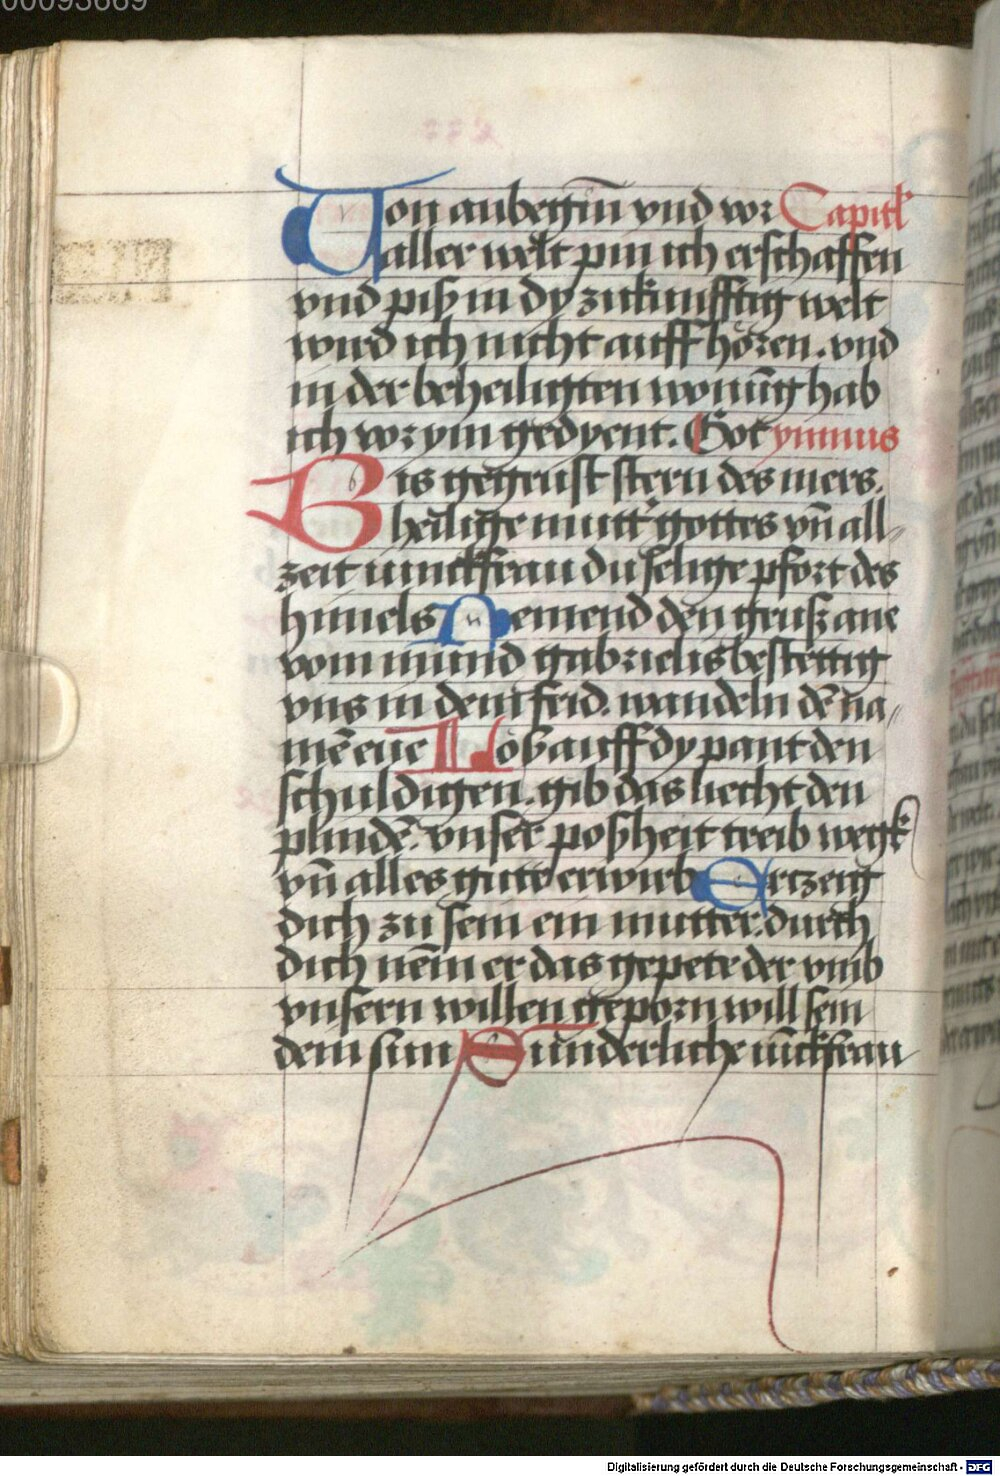 00093669
Von anbegin̄ vnd vor Capitl
aller welt pin ich erschaffen
vnd piß in dy zukunfftig welt
wird ich nicht auffhören. vnd
in der beheiligten wonūg hab
ich vor ym gedyent. Got ymnus
Bis gegrust stern des mers.
heilige mutt' gottes vn̄ all„
zeit iunckfrau du selige pfort des
himels Nemend den gruß aue
vom mund gabrielis bestettig
vns in dem frid. wandeln dē na„
mē eue Löß auff dy pant den
schuldigen. gib das liecht den
plindē. vnser poßheit treib wegk
vn̄ alles gutt erwirb Ertzeig
dich zu sein ein mutter. durch
dich nem er das gepete der vmb
vnsern willen geporn will sein
dein sun Sunderliche iūckfrau
Digitalisierung gefördert durch die Deutsche Forschungsgemeinschaft - DFG